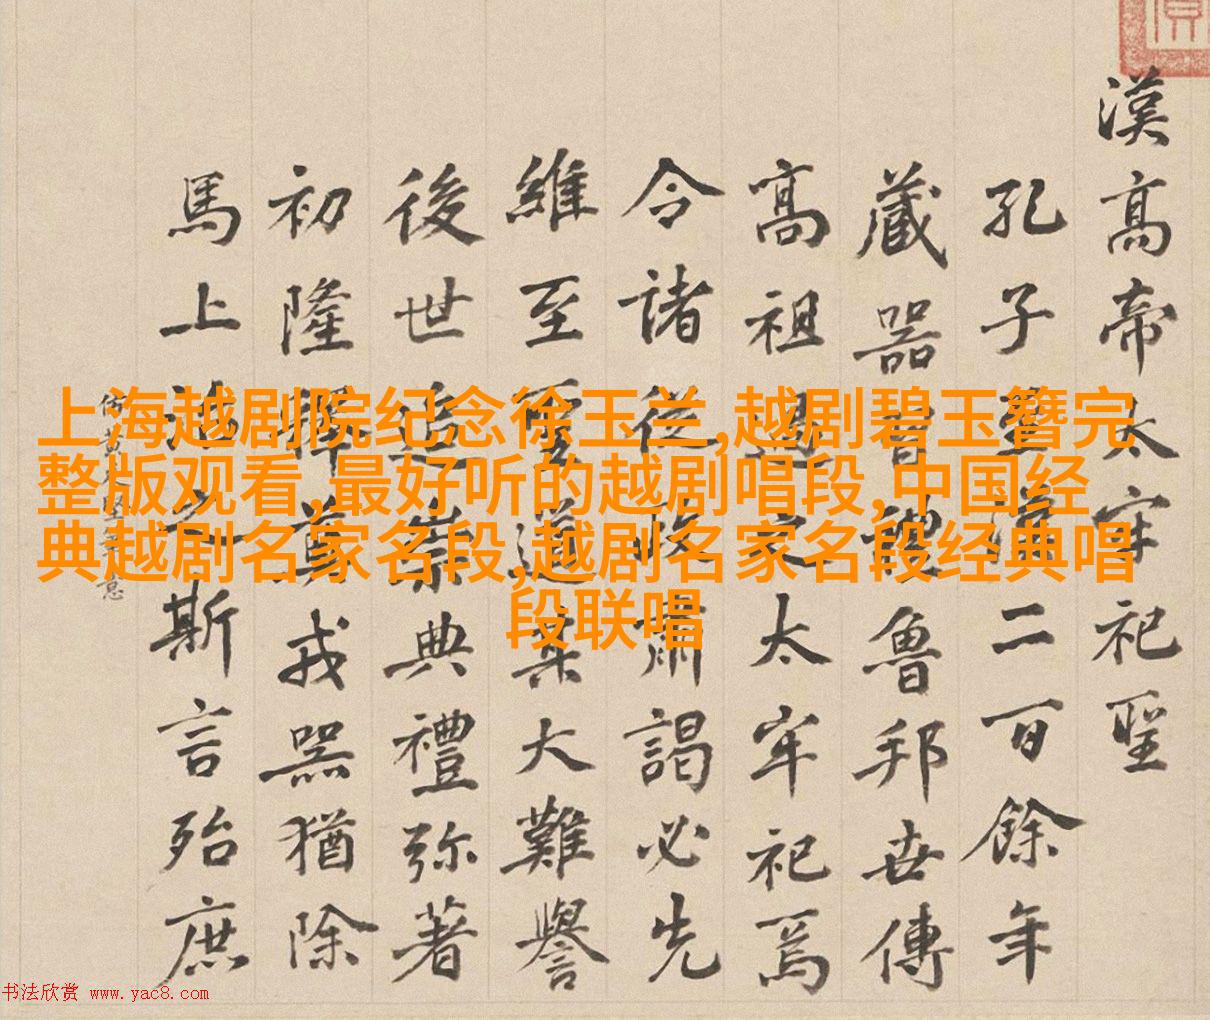 上海越剧院纪念徐玉兰,越剧碧玉簪完
整版观看,最好听的越剧唱段,中国经
典越剧名家名段,越剧名家名段经典唱
段联唱
漢高帝太牢祀聖
孔子聖二百餘年
藏器魯邦世傳
高祖過之太牢祀焉
令諸從政肅謁必先
維至聖道莫大難譽
後世追崇典禮弥著
初隆尊戎器猶除
馬上斯言殆庶
书法欣赏 www.yac8.com